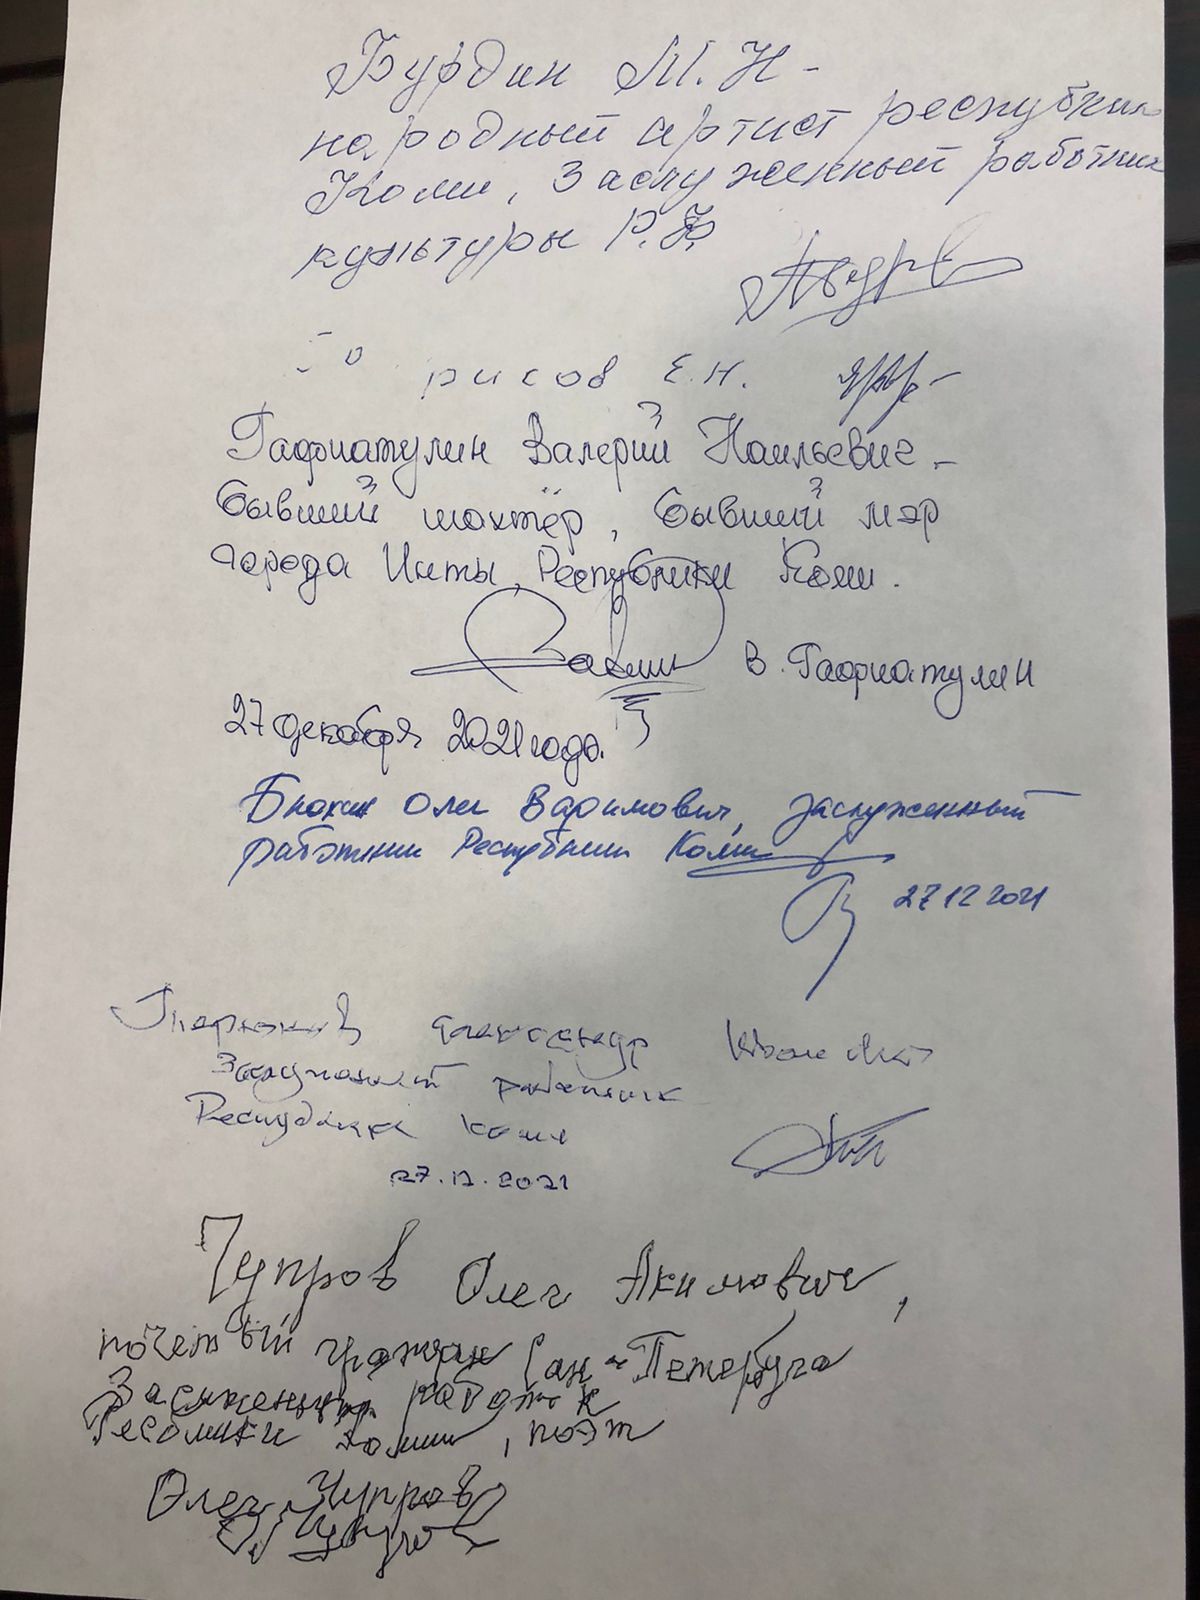 Бурдин М.Н -
народный артист республики
Коми, Заслуженный работник
культуры Р.Ф
Борисов Е.Н.
Гафиатулин Валерий Наильевич -
бывший шахтёр, бывший мэр
города Инты, Республики Коми.
В. Гафиатулин
27 декабря 2021 года.
Олег Вадимович, заслуженный
работник Республики Коми
27 12 2021
Александр Иванович
Заслуженный работник
Республики Коми
27.12.2021
Чупров Олег Акимович,
почетный граждан Санкт-Петербуга
работник
Коми, поэт
Олег Чупров